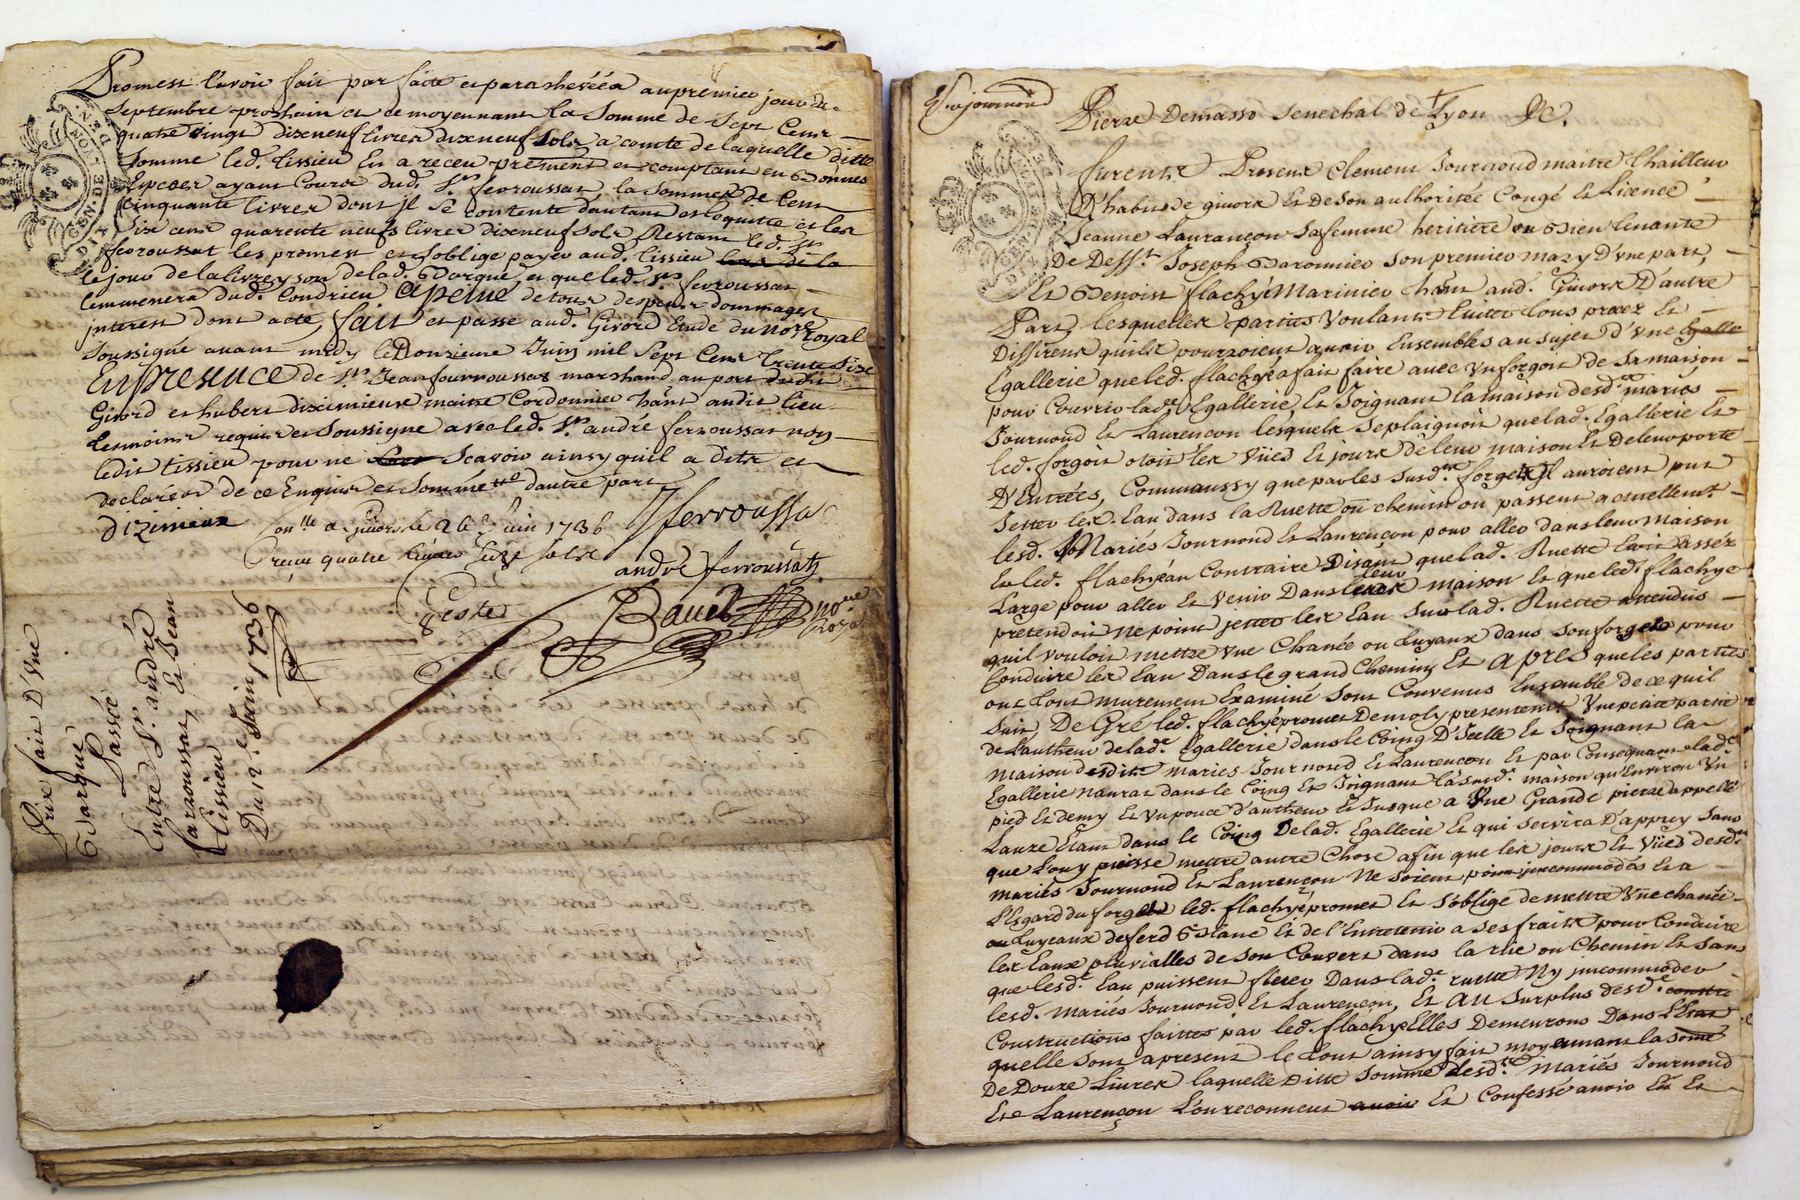 Promest l'avoir fait par faite et parachevée a au premier jour de
Septembre prochain et ce moyennant la Somme de Sept Cens
quatre vingt dixneuf livres dixneuf sols a comte de laquelle ditte
Somme led. tissieu En a receu prement et comptant en Bonnes
Espces ayant Cours dud. Sr. ferroussat, la Somme de Cens
Cinquante livres dont Jl Se contente d'autant et quitte et les
Six cens quarente neufs livres dixneuf sols Restant led. Sr
ferroussat les promest et s'oblige payer aud. tissieu lors de la
le jour de la livreyson de lad. Barque et que led. Sr ferroussat
l'emmenera dud. Condrieu, A peine de tous despens dommages
jnterest dont acte, fait et passé aud. Givord Etude du nore Royal
Soussigné avant midy le Douzieme Juin mil Sept Cens Trente Size
En presence de Sr. Jean marchand au port dudit
Givord et hubert dizimieux maitre Cordonnier hānt audit lieu
tesmoins requis et Soussigné avec led. Sr. andré ferroussat non
ledit tissieu pour ne Scavoir ainsy quil a dit et
declaré de ce Enquis et Sommé d'autre part
dizimieux
Conlle a givor le 26e Juin 1736
Jfferroussa
receu quatre livres Seize sols
andré ferroussat
Geste
Bauet nore Royal
Prix fait D'Vne
Barque
Passée
Entre Sr. andré
farroussat, Et Jean
tissieu
Du 12e. Juin 1736
DEN. DIX
GEN. DE LION
Journoud
Pierre Demasso Senechal de Lyon &C.
furent Presens Clement Journoud maitre thailleur
D'habits de givors Et de Son authorité Congé Et Licence
Jeanne Laurançon Safemme heritiere ou Bien tenante
De Deff.t Joseph Baronnier Son premier mary D'vne part,
Et Benoist flachye Marinier hānt aud. Givors D'autre
Part, lesquelles parties Voulant Euiter tous proces Et
Differens quils pourroient auoir Ensembles au sujet d'vne galle
Egallerie que led. flachye a fait faire auec vn forgois de Sa maison
pour Couvrir lade Egallerie Et Joignant la maison desd. mariés
Journoud Et Laurençon lesquels Seplaignoit que lad. Egallerie Et
led. forgois otoit les Vües Et jours de leur maison Et de leur porte
D'Entrées, Comm aussy que par les Susd. forgets Jl auroient put
Jetter les Eau dans la Ruette ou chemin ou passent actuellemt.
lesd. Mariés Journoud Et Laurençon pour aller dans leur Maison
Et led. flachye au Contraire Disant que lad. Ruette Etoit assés
Large pour aller Et Venir Dans leur maison Et que led. flachye
pretendoit ne point jetter les Eau Sur lad. Ruette attendus
quil vouloit mettre vne Chanée ou tuyaux dans Son forgets pour
Conduire les Eau Dans le grand Chemin, Et apres que les parties
ont tout murement Examiné Sont Convenus Ensemble de ce quil
Suit, De Gré led. flachye promet Demoly presentemt Vne partie
de l'autheur de lade. Egallerie dans le Coing D'Icelle Et Joignant la
maison desdits mariés Journoud Et Laurençon Et par Consequant lade.
Egallerie n'aura dans le Coing Et Joignant la Susd. maison qu'Environ Vn
pied Et demy Et vn pouce d'autheur Et Jusque a Vne Grande pierre appellé
Lauze Etant dans le Coing De lad. Egallerie Et qui Servira D'appuy Sans
que L'on y puisse mettre autre Chose afin que les jours Et Vües desd.
mariés Journoud Et Laurençon Ne Soient point jncommodés Et a
l'Esgard du forgets led. flachye promet Et S'oblige de mettre Vne chanée
ou tuyeaux de ferd Blanc Et de l'Entretenir a ses frais pour Conduire
les Eaux pluvialles de Son Couvert dans la rüe ou Chemin Et Sans
que lesd. Eau puissent fluer Dans lade. ruette Ny jncommoder
lesd. mariés Journoud Et Laurençon, Et au Surplus desd. constru
Constructions faittes par led. flachye Elles Demeurons Dans l'Etat
quelle Sont apresent le tout ainsy fait moyennant la Some
De Douze Livres laquelle Ditte Somme lesd. mariés Journoud
Et Laurençon L'on reconneus auoir Et Confessé avoir Eu Et